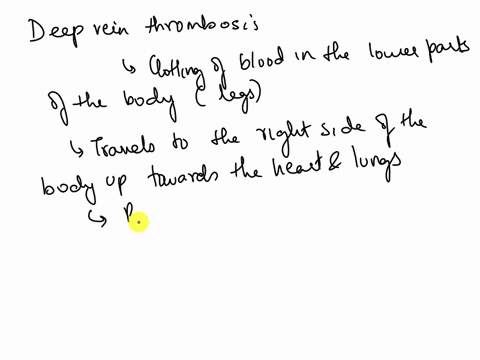 Deep vein thrombosis
↳ Clotting of blood in the lower parts
of the body (legs)
↳ Travels to the right side of the
body up towards the heart & lungs
↳ P